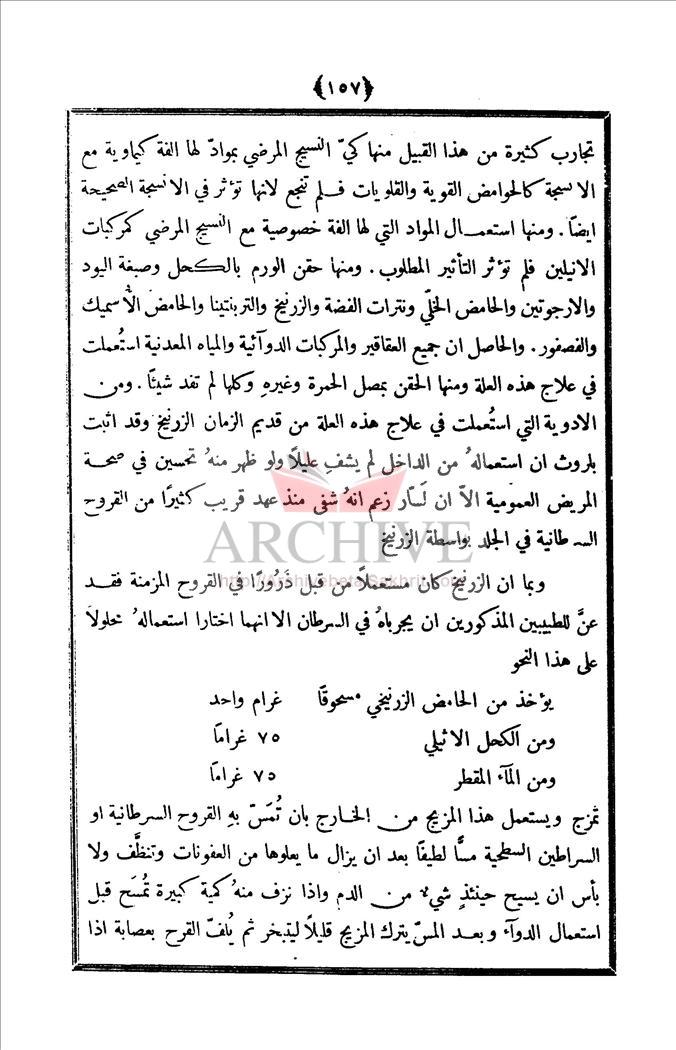 ﴿١٥٧﴾
تجارب كثيرة من هذا القبيل منها كيّ النسيج المرضي بموادّ لها الفة كيماوية مع
الانسجة كالحوامض القوية والقلويات فلم تنجع لانها تؤثر في الانسجة الصحيحة
ايضًا . ومنها استعمال المواد التي لها الفة خصوصية مع النسيج المرضي كمركبات
الانيلين فلم تؤثر التأثير المطلوب . ومنها حقن الورم بالكحل وصبغة اليود
والارجوتين والحامض الخلّي ونترات الفضة والزرنيخ والتربنتينا والحامض الأسميك
والفصفور . والحاصل ان جميع العقاقير والمركبات الدوآئية والمياه المعدنية استُعملت
في علاج هذه العلة ومنها الحقن بمصل الحمرة وغيرهِ وكلها لم تفد شيئًا . ومن
الادوية التي استُعملت في علاج هذه العلة من قديم الزمان الزرنيخ وقد اثبت
بلروث ان استعمالهُ من الداخل لم يشفِ عليلًا ولو ظهر منهُ تحسين في صحة
المريض العمومية الّا ان لَسّار زعم انهُ شفى منذ عهد قريب كثيرًا من القروح
السرطانية في الجلد بواسطة الزرنيخ
ARCHIVE
http://Archivebeta.Sakhrit.com
وبما ان الزرنيخ كان مستعملًا من قبل ذَرُورًا في القروح المزمنة فقد
عنَّ للطبيبين المذكورين ان يجرباهُ في السرطان الا انهما اختارا استعمالهُ محلولًا
على هذا النحو
يؤخذ من الحامض الزرنيخي مسحوقًا غرام واحد
ومن الكحل الاثيلي ٧٥ غرامًا
ومن المآء المقطر ٧٥ غرامًا
تمزج ويستعمل هذا المزيج من الخارج بان تُمَسّ بهِ القروح السرطانية او
السراطين السطحية مسًّا لطيفًا بعد ان يزال ما يعلوها من العفونات وتنظَّف ولا
بأس ان يسيح حينئذٍ شيء من الدم واذا نزف منهُ كمية كبيرة تُمسَح قبل
استعمال الدوآء وبعد المسّ يترك المزيج قليلًا ليتبخر ثم يُلفّ القرح بعصابة اذا